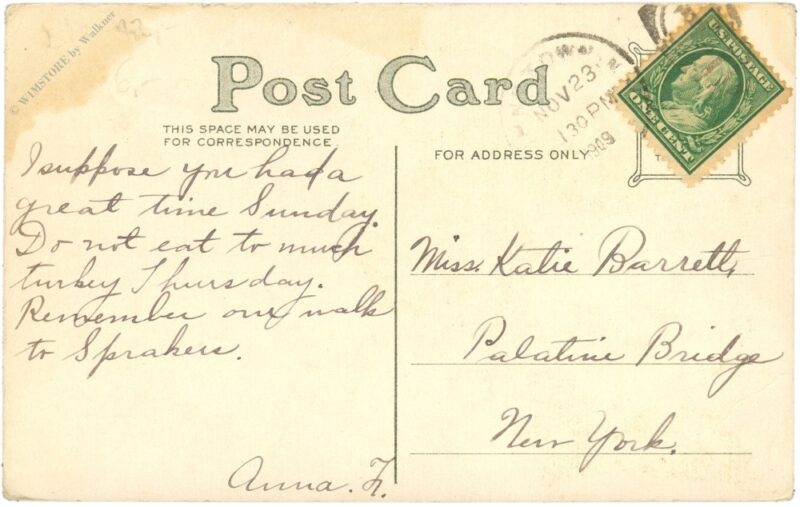 © WIMSTORE by Walkner
Post Card
THIS SPACE MAY BE USED
FOR CORRESPONDENCE
FOR ADDRESS ONLY
NOV 23
1 30 PM
1909
U.S. POSTAGE
ONE CENT
I suppose you had a
great time Sunday.
Do not eat to much
turkey Thursday.
Remember our walk
to Sprakers.
Anna. F.
Miss. Katie Barrett,
Palatine Bridge
New York.